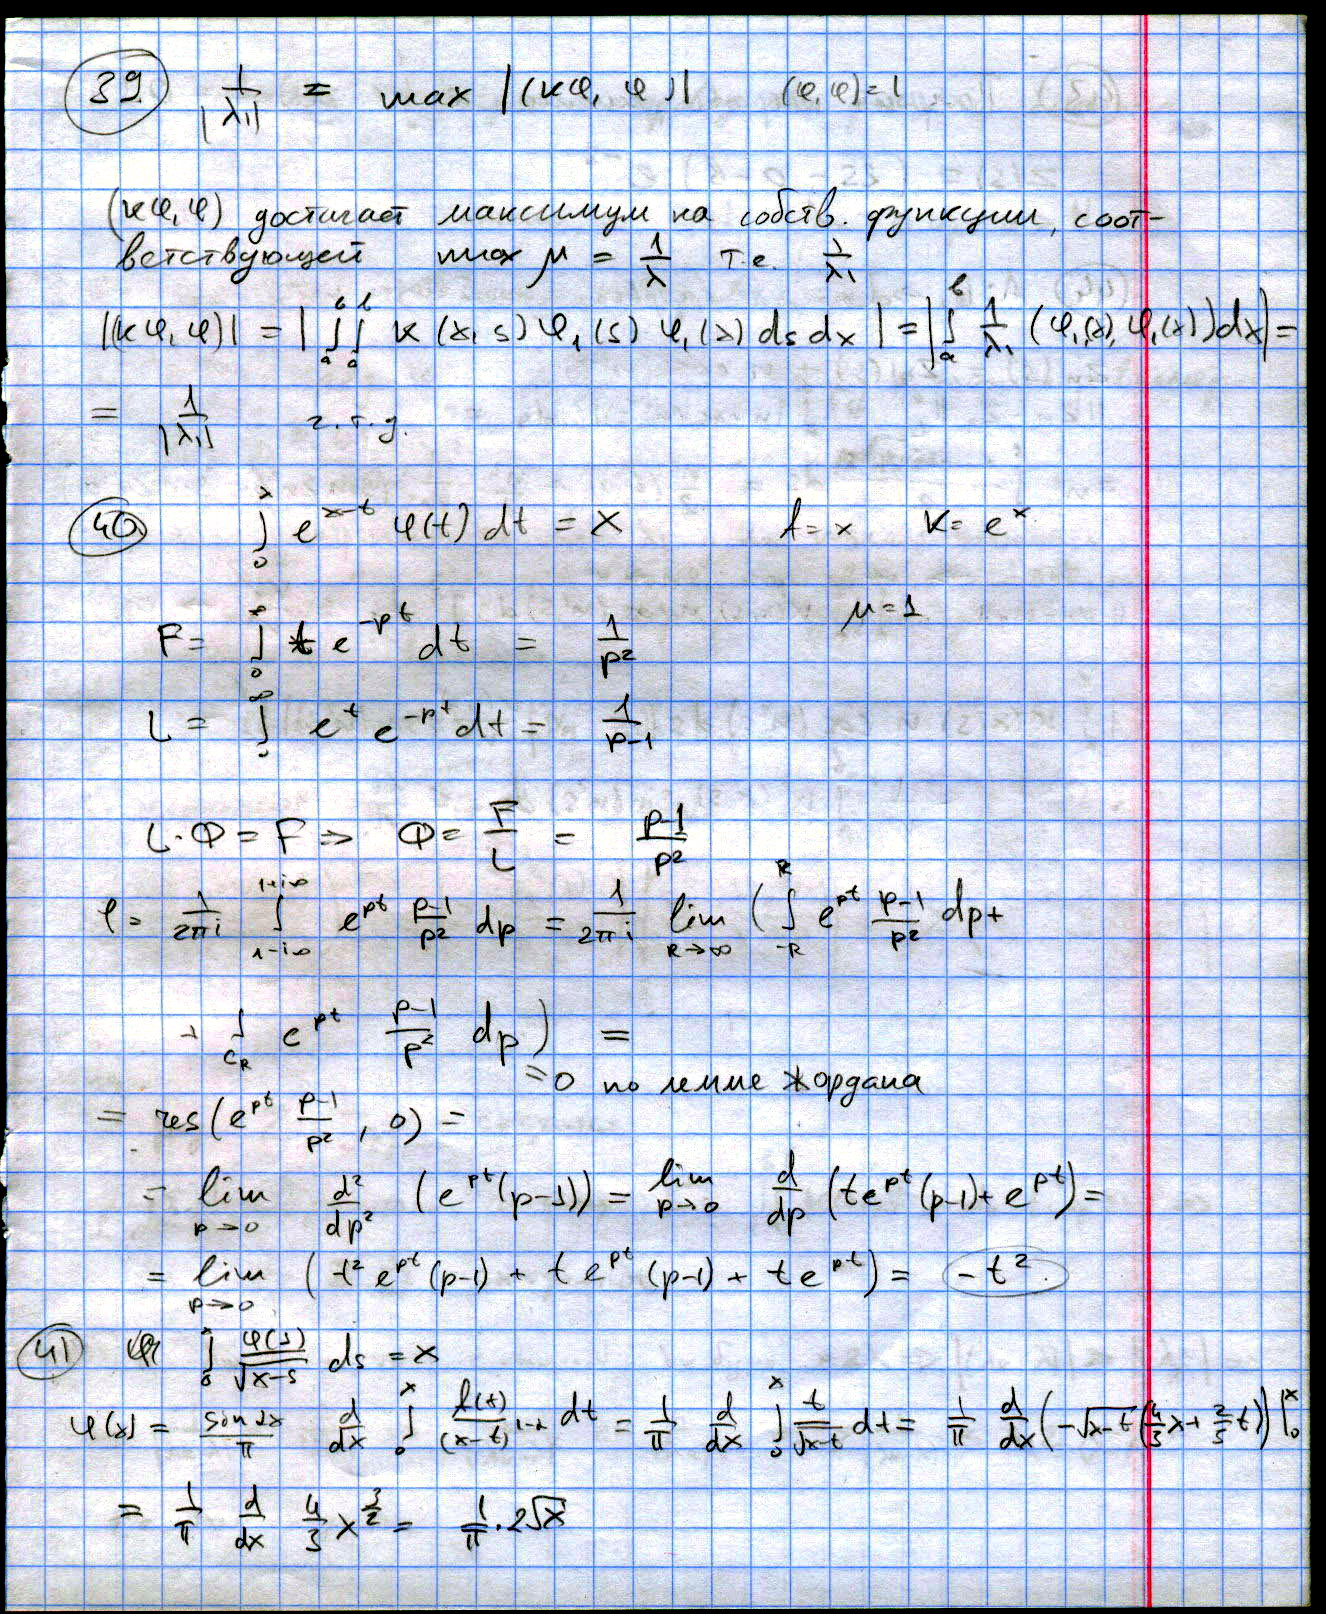 39 1/|λ₁| = max |(κφ, φ)| (φ,φ)=1
(κφ,φ) достигает максимум на собств. функции, соот-
ветствующей max μ = 1/λ т.е. 1/λ₁
|(κφ,φ)| = |∫ₐᵇ∫ₐᵇ κ(x,s) φ₁(s) φ₁(x) ds dx| = |∫ₐᵇ 1/λ₁ (φ₁(x), φ₁(x)) dx| =
= 1/|λ₁| ч.т.д.
40 ∫₀ˣ e^(x-t) φ(t) dt = x f = x K = eˣ
μ = 1
F = ∫₀^∞ t e^(-pt) dt = 1/p²
L = ∫₀^∞ e^t e^(-pt) dt = 1/(p-1)
L·Φ = F ⇒ Φ = F/L = (p-1)/p²
φ = 1/(2πi) ∫_(1-i∞)^(1+i∞) e^(pt) (p-1)/p² dp = 1/(2πi) lim_(R→∞) (∫_(-R)^R e^(pt) (p-1)/p² dp +
+ ∫_(C_R) e^(pt) (p-1)/p² dp) =
= 0 по лемме Жордана
= res(e^(pt) (p-1)/p², 0) =
= lim_(p→0) d²/dp² (e^(pt)(p-1)) = lim_(p→0) d/dp (t e^(pt)(p-1) + e^(pt)) =
= lim_(p→0) (t² e^(pt)(p-1) + t e^(pt)(p-1) + t e^(pt)) = -t²
41 ∫₀ˣ φ(s)/√(x-s) ds = x
φ(x) = sin αx/π d/dx ∫₀ˣ f(t)/(x-t)^(1-α) dt = 1/π d/dx ∫₀ˣ t/√(x-t) dt = 1/π d/dx (-√(x-t) (4/3 x + 2/3 t))|₀ˣ
= 1/π d/dx 4/3 x^(3/2) = 1/π · 2√x